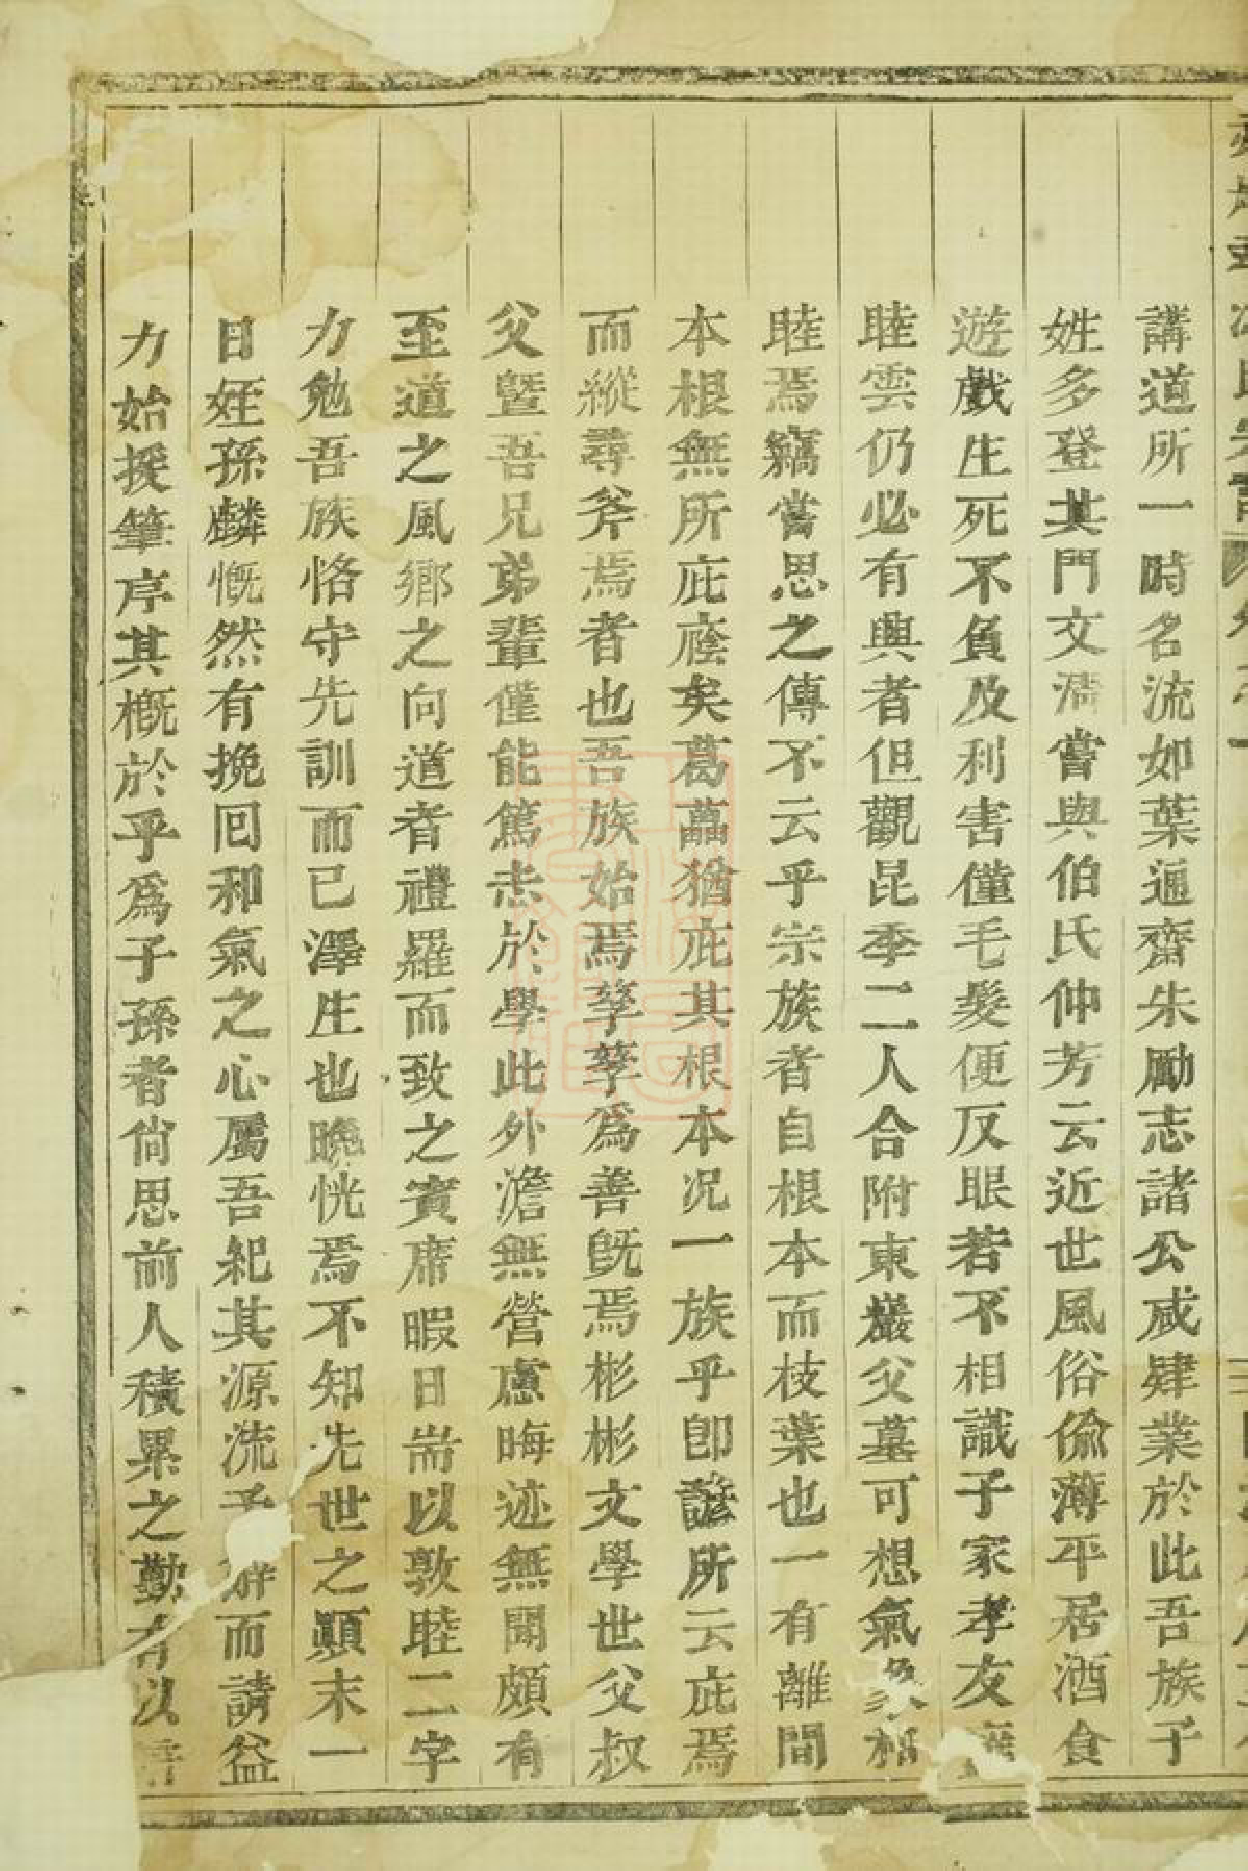 講道所一時名流如葉通齋朱勵志諸公咸肄業於此吾族子
姓多登其門文清嘗與伯氏仲芳云近世風俗偸薄平居酒食
遊戲生死不負及利害僅毛髮便反眼若不相識子家孝友
睦雲仍必有興者但觀昆季二人合附東巖父墓可想氣象
睦焉竊嘗思之傳不云乎宗族者自根本而枝葉也一有離間
本根無所庇廕矣葛藟猶庇其根本况一族乎卽諺所云庇焉
而縱尋斧焉者也吾族始焉孳孳爲善旣焉彬彬文學世父叔
父曁吾兄弟輩僅能篤志於學此外澹無營慮晦迹無聞頗有
至道之風鄉之向道者禮羅而致之賓席暇日耑以敦睦二字
力勉吾族恪守先訓而已澤生也晚恍焉不知先世之顚末一
日姪孫麟慨然有挽回和氣之心屬吾紀其源流予辭而請益
力始援筆序其槪於乎爲子孫者尙思前人積累之勤有以